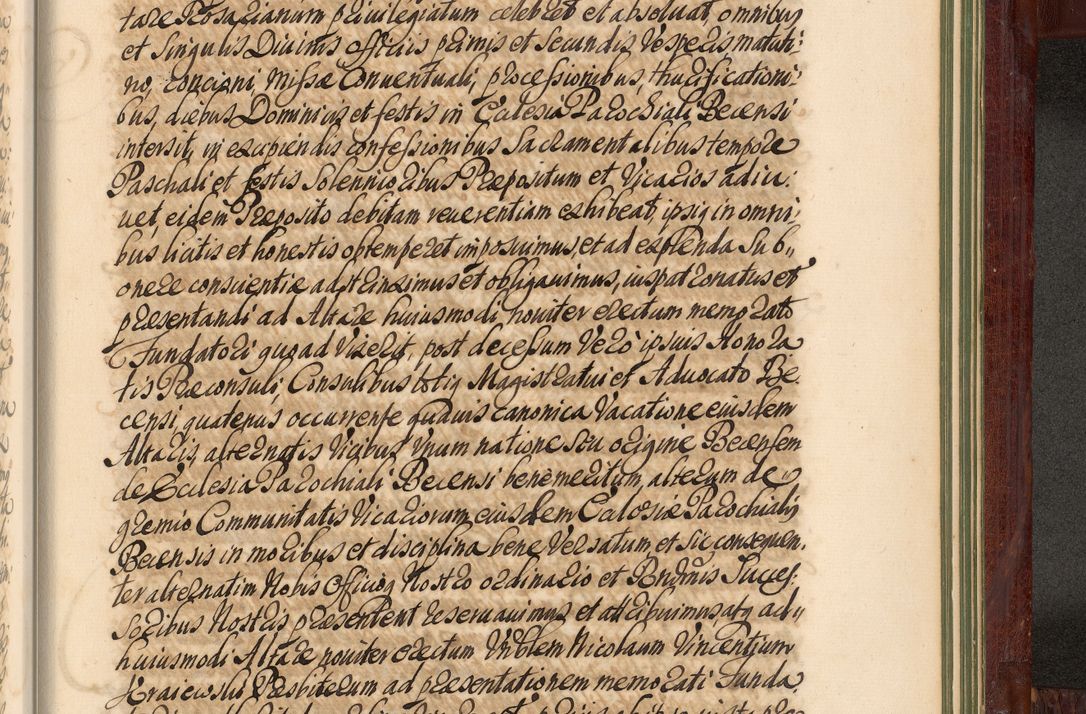 tare Rosarianum privilegiatum celebret et absoluat, omnibus
et Singulis Diuinis Officiis primis et Secundis Vesperis matuti:
no, concioni, Missæ Conuentuali, processionibus, thurificationi:
bus, diebus Dominicis et festis in Eclesia Parochiali Becensi
intersit, in excipiendis confessionibus Sacramentalibus tempore
Paschali et festis Solennioribus Præpositum et Vicarios adiu:
uet, eidem Præposito debitam reuerentiam exhibeat, ipsiq in omni:
bus licitis et honestis obtemperet imposuimus, et ad explenda Sub
onere conscientiæ adstrinximus et obligauimus, iuspatronatus et
præsentandi ad Altare huiusmodi nouiter erectum memorato
Fundatori quoad Vixerit, post decessum Vero ipsius Honora
tis Præconsuli, Consulibus totiq Magistratui et Aduocato Be
censi, quatenus occurrente quauis canonica Vacatione eiusdem
Altaris, alternatis Vicibus Vnum natione seu origine Becensem
de Ecclesia Parochiali Becensi benemeritum, alterum de
gremio Communitatis Vicariorum eiusdem Eclesiæ Parochialis
Becensis in moribus et disciplina bene Versatum, et sic consequen,
ter alternatim Nobis Officioq Nostro ordinario et Rndmis Succes
soribus Nostris præsentent reseruauimus et attribuimus atq ad
huiusmodi Altare nouiter erectum Vnblem Nicolaum Vincentium
Kraiewski Presbiterum ad præsentationem memorati Funda